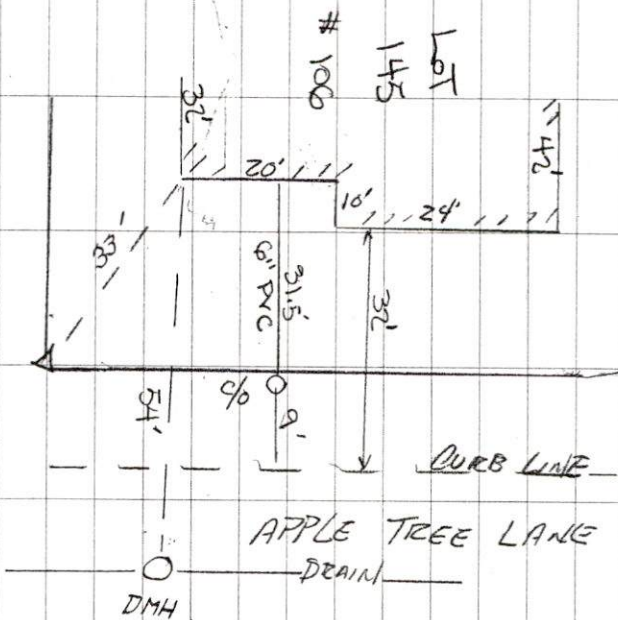 LOT
145
# 106
32'
42'
20'
10'
24'
33'
31.5'
6" PVC
32'
54'
c/o
9'
CURB LINE
APPLE TREE LANE
DRAIN
DMH